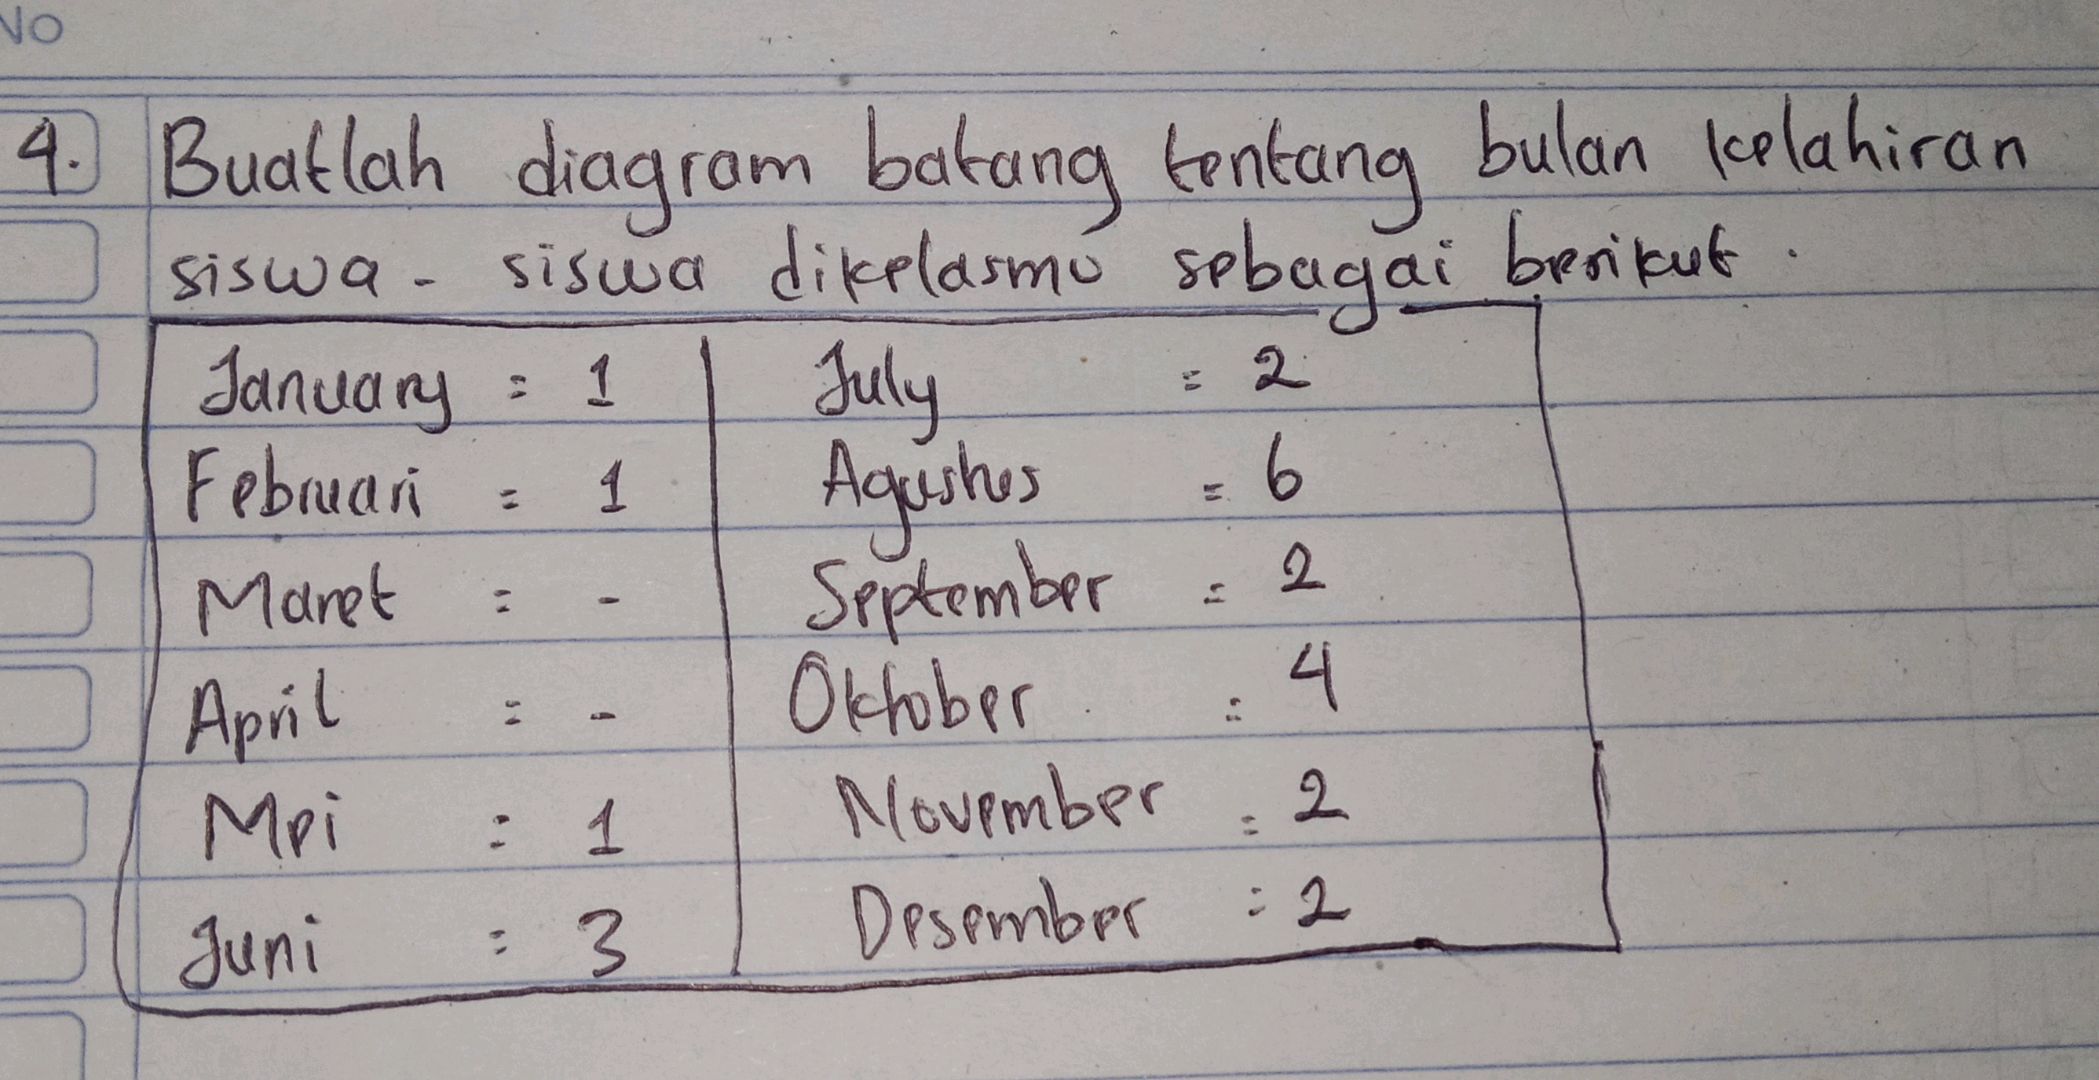 NO
4. Buatlah diagram batang tentang bulan kelahiran
siswa - siswa dikelasmu sebagai berikut.
January = 1 July = 2
Februari = 1 Agustus = 6
Maret = - September = 2
April = - Oktober = 4
Mei = 1 November = 2
Juni = 3 Desember = 2